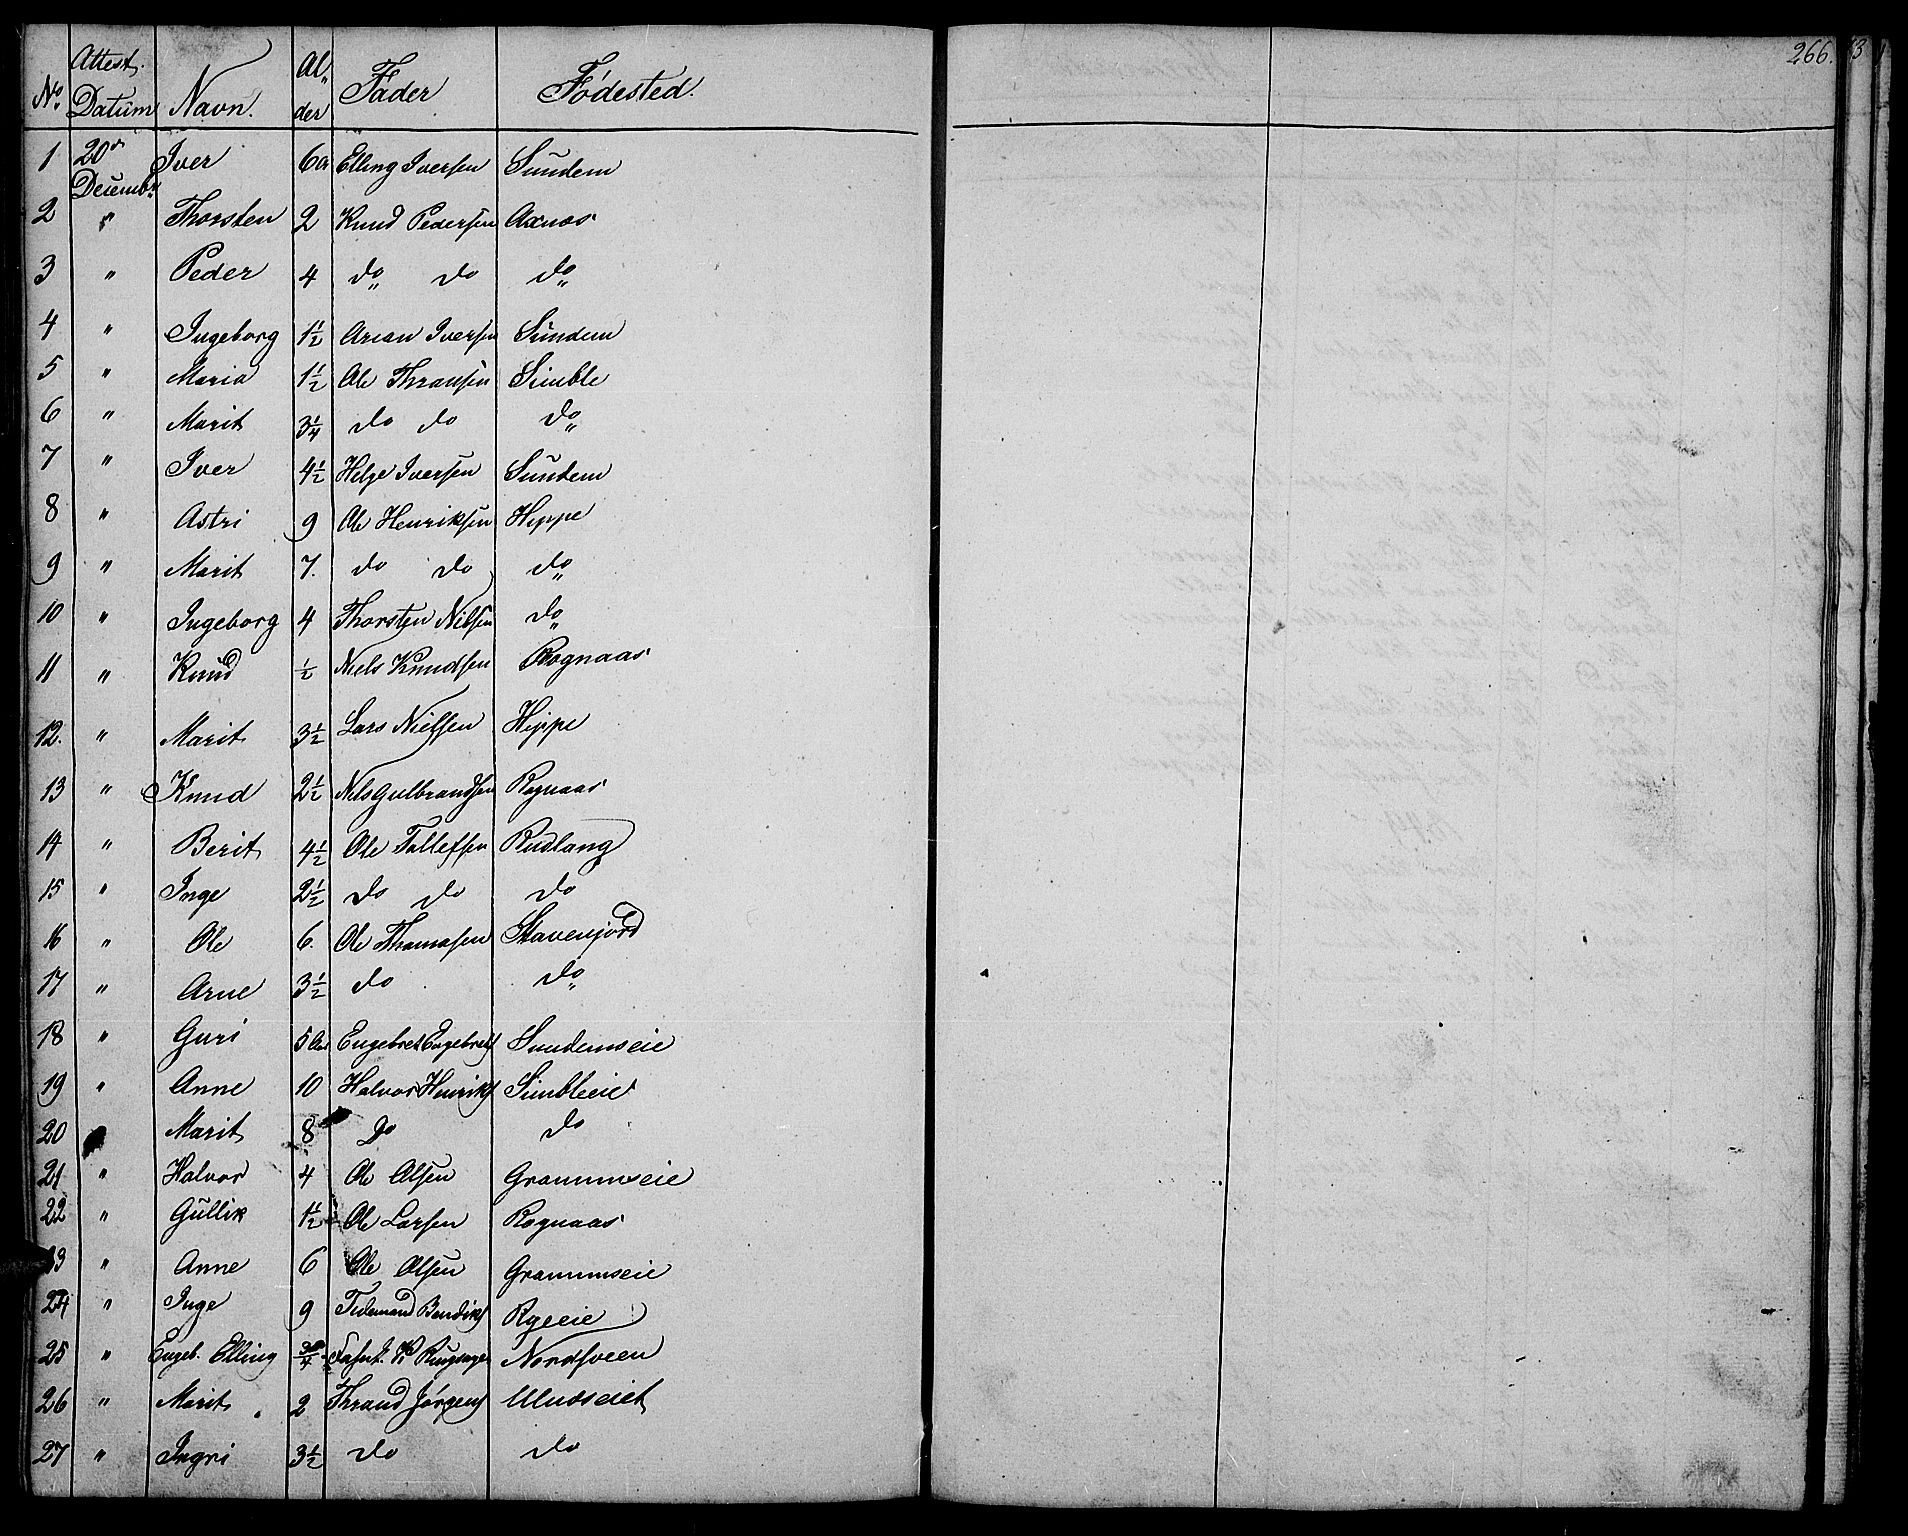 No. Attest. Datum Navn. Al„der Fader Fødested. 266.
1 20de Decembr Iver 6 Elling Iversen Sundem
2 " Thorsten 2 Knud Pedersen Axnæs
3 " Peder 4 do„ do do„
4 " Ingeborg 1½ Arian Iversen Sundem
5 " Maria 1½ Ole Thransen Simble
6 " Marit 3¼ do do do„
7 " Iver 4½ Helge Iversen Sundem
8 " Astri 9 Ole Henriksen Hippe
9 " Marit 7. do do do„
10 " Ingeborg 4 Thorsten Nilsen do„
11 " Knud ½ Niels Knudsen Rognaas
12. " Marit 3½ Lars Nielsen Hippe
13 " Knud 2½ Nils Gulbrandsen Rognaas
14 " Berit 4½ Ole Tollefsen Rudlang
15 " Inge 2½ do do do
16 " Ole 6. Ole Thomasen Stavenjord
17 " Arne 3½ do do„
18 " Guri 5 Engebret Engebrets Sundemseie
19 " Anne 10 Halvor Henriks Simbleeie
20 Marit 8 Do do
21 " Halvor 4 Ole Olsen Grammseie
22 " Gullik 1½ Ole Larsen Rognaas
23 " Anne 6 Ole Olsen Grammseie
24 " Inge 9 Tidemand Bendiks Ryeeie
25 " Engeb. Elling ¾ Nordsveen
26 " Marit 2 Thrand Jørgens Ulnæseiet
27 " Ingri 3½ do do